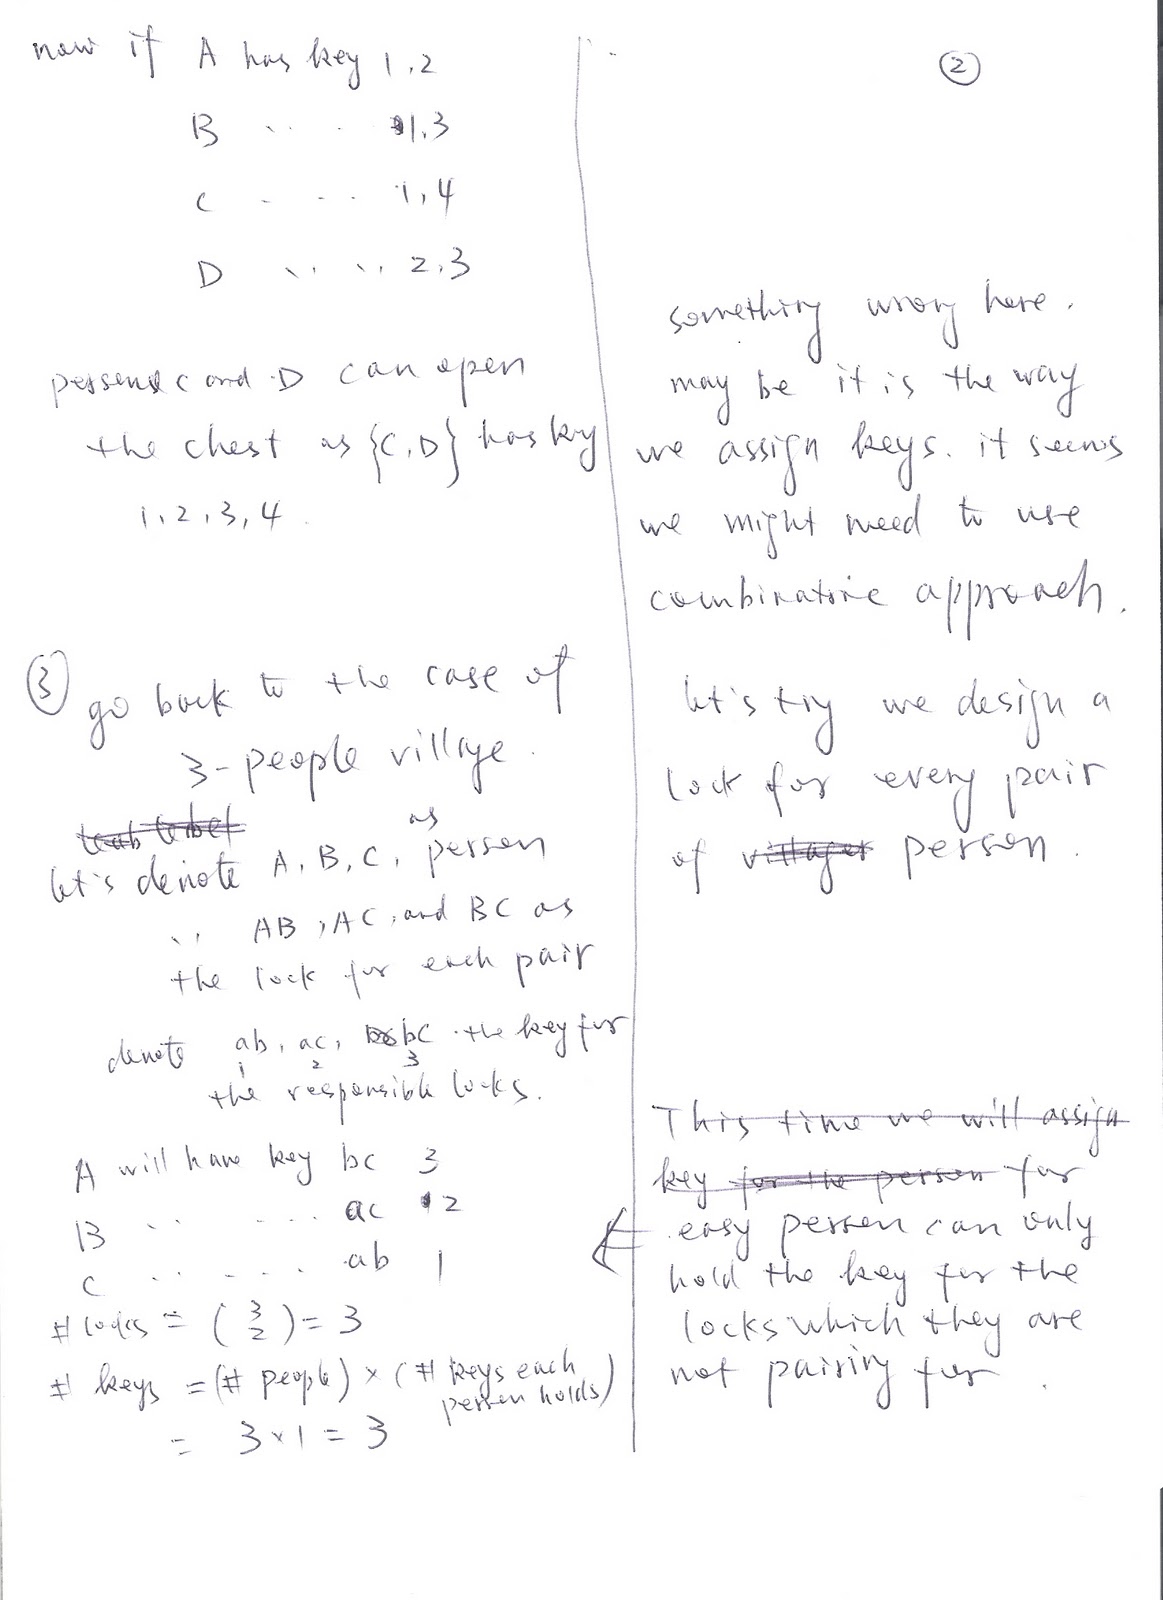 now if A has key 1,2
B .. .. 1,3
C .. .. 1,4
D .. .. 2,3
persons C and D can open
the chest as {C,D} has key
1,2,3,4
③ go back to the case of
3-people village.
let's denote A, B, C, as person
.. AB, AC, and BC as
the lock for each pair
denote ab, ac, bc the key for
1 2 3
the responsible locks.
A will have key bc 3
B .. .... ac 2
C .. .... ab 1
# locks = (3 2) = 3
# keys = (# people) × (# keys each
person holds)
= 3×1 = 3
②
something wrong here.
may be it is the way
we assign keys. it seems
we might need to use
combinatoric approach.
let's try we design a
lock for every pair
of villager person.
This time we will assign
key for the person for
easy person can only
hold the key for the
locks which they are
not pairing for.